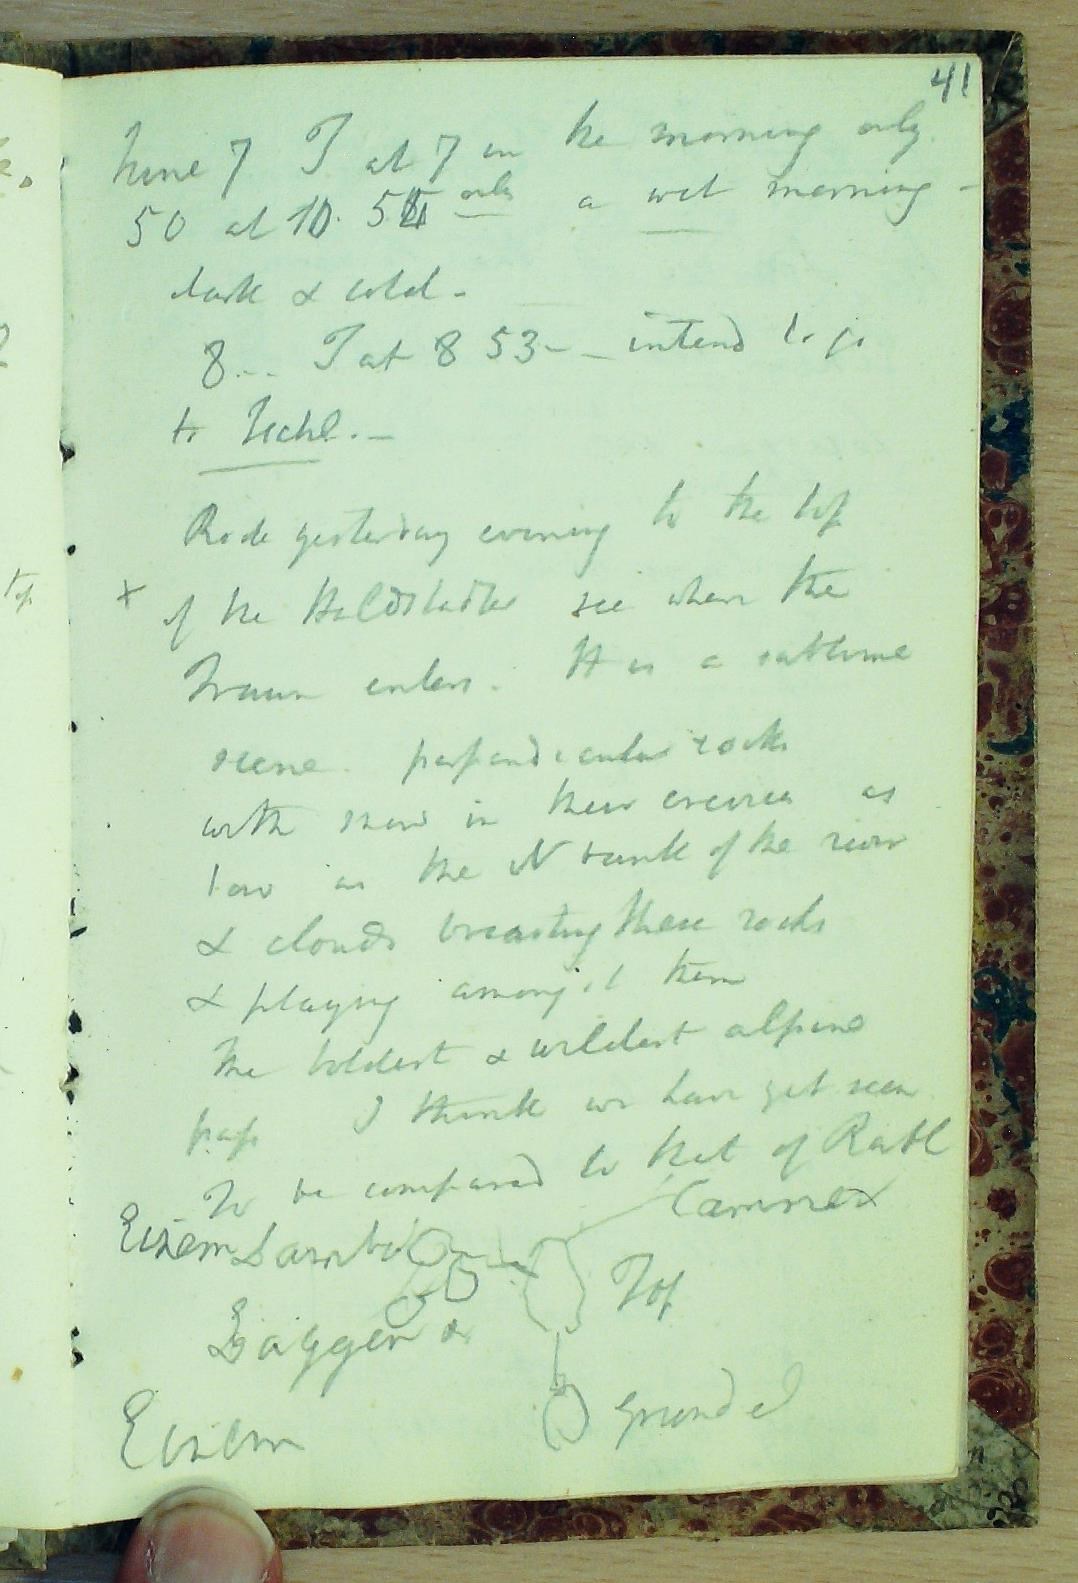 41
June 7 T at 7 in the morning only
50 at 10. 54 only a wet morning -
dark & cold -
8 -- T at 8 53 -- intend to go
to Ischl. -
Rode yesterday evening to the top
x of the Halstadter see where the
Traun enters. It is a sublime
scene perpendicular rocks
with snow in their crevices as
low as the N bank of the river
& clouds breasting these rocks
& playing amongst them
The boldest & wildest alpine
pass I think we have yet seen
To be compared to that of Raibl
Cammer
Eisern
Top
Gaggen &
Grundel
Eisern